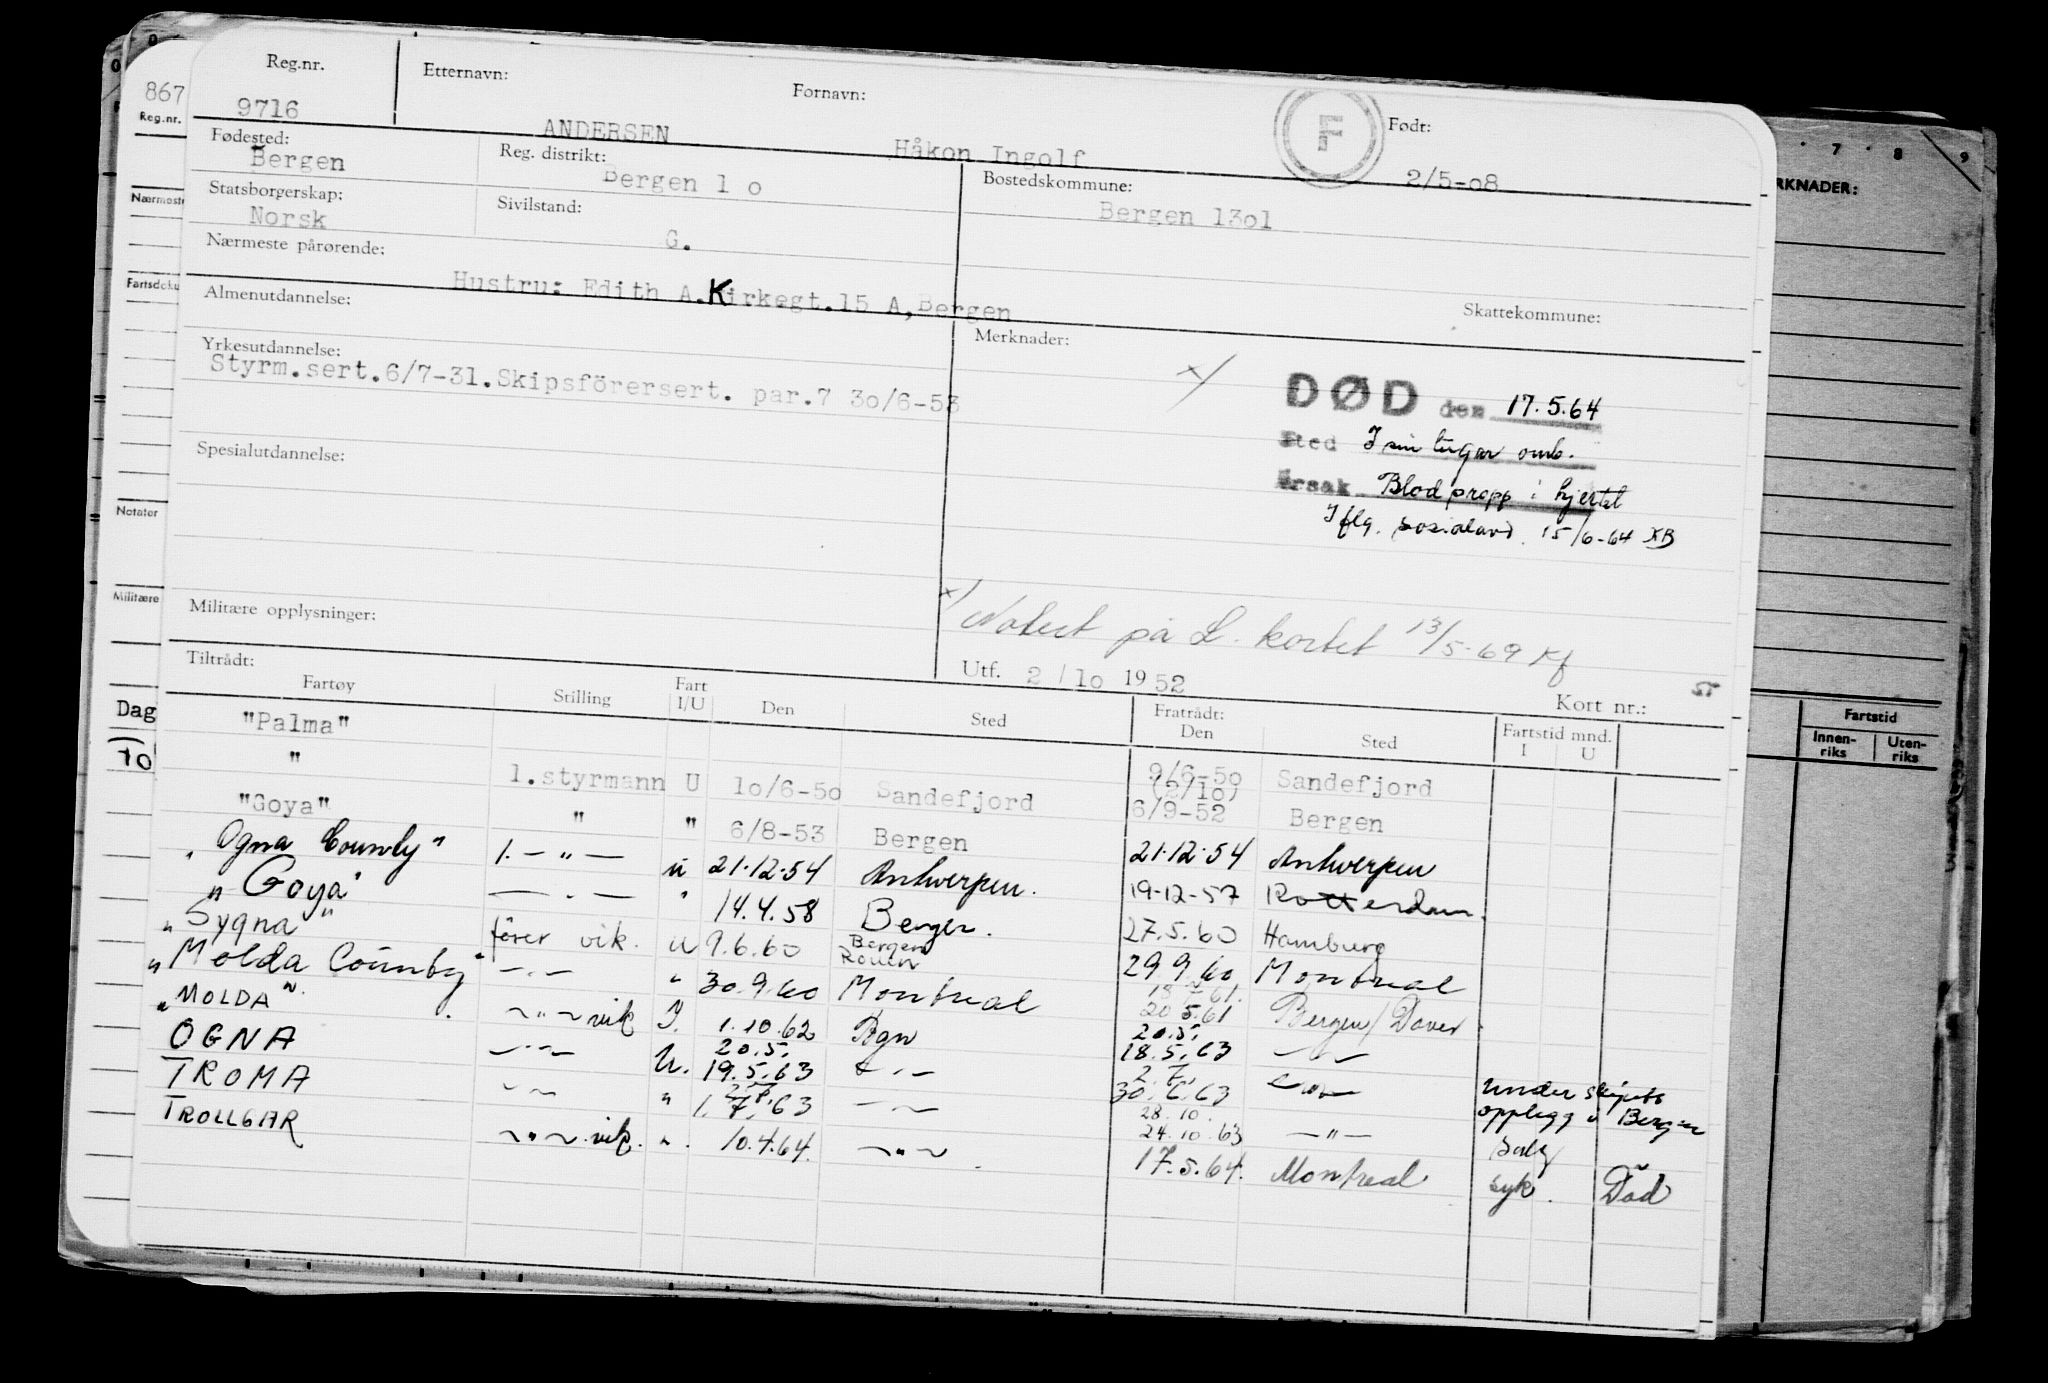 Reg.nr. Etternavn: Fornavn: F Født:
867 9716 ANDERSEN Håkon Ingolf 2/5-08
Reg.nr.
Fødested: Reg. distrikt: Bostedskommune:
Bergen Bergen 1 o Bergen 13o1
Statsborgerskap: Sivilstand:
Norsk G.
Nærmeste pårørende:
Hustru: Edith A.Kirkegt.15 A,Bergen
Almenutdannelse: Skattekommune:
Yrkesutdannelse: Merknader:
Styrm.sert.6/7-31.Skipsförersert. par.7 3o/6-53
x/
DØD den 17.5.64
Sted I sin lugar omb.
Årsak Blodpropp i hjertet
Iflg. sosialavd. 15/6-64 KB
Spesialutdannelse:
Militære opplysninger:
x/ Notert på L. kortet 13/5-69 Kf
Utf. 2/1o 1952
Kort nr.:
Tiltrådt: Fratrådt:
Fartøy Stilling Fart I/U Den Sted Den Sted Fartstid mnd. I U
"Palma" 9/6-5o Sandefjord
" 1.styrmann U 1o/6-5o Sandefjord (2/10) 6/9-52 Bergen
"Goya" " " 6/8-53 Bergen 21.12.54 Antwerpen
"Ogna County" 1. — " — u 21.12.54 Antwerpen. 19-12-57 Rotterdam.
"Goya" — " — " 14.4.58 Bergen. 27.5.60 Hamburg
"Sygna" fører vik. u 9.6.60 Bergen Rouen 29 9.60 Montreal
"Molda County" — " — " 30.9.60 Montreal 20 5.61 Bergen/Dover
"MOLDA" — " — vik I. 1.10.62 Bgn 20.5. 18.5.63 — " —
OGNA — " — U. 20.5. 19.5.63 — " — 2.7. 30.6.63 — " — under skipets opplegg i Bergen
TROMA — " — " 2.7. 1.7.63 — " — 28.10. 24.10.63 — " — salg
TROLLGAR — " — vik. " 10.4.64. — " — 17.5.64. Montreal syk. Död
Nærmeste
Fartsdoku
Notater
Militære
Dag
7 8 9
RKNADER:
Fartstid
Innen-riks Uten-riks